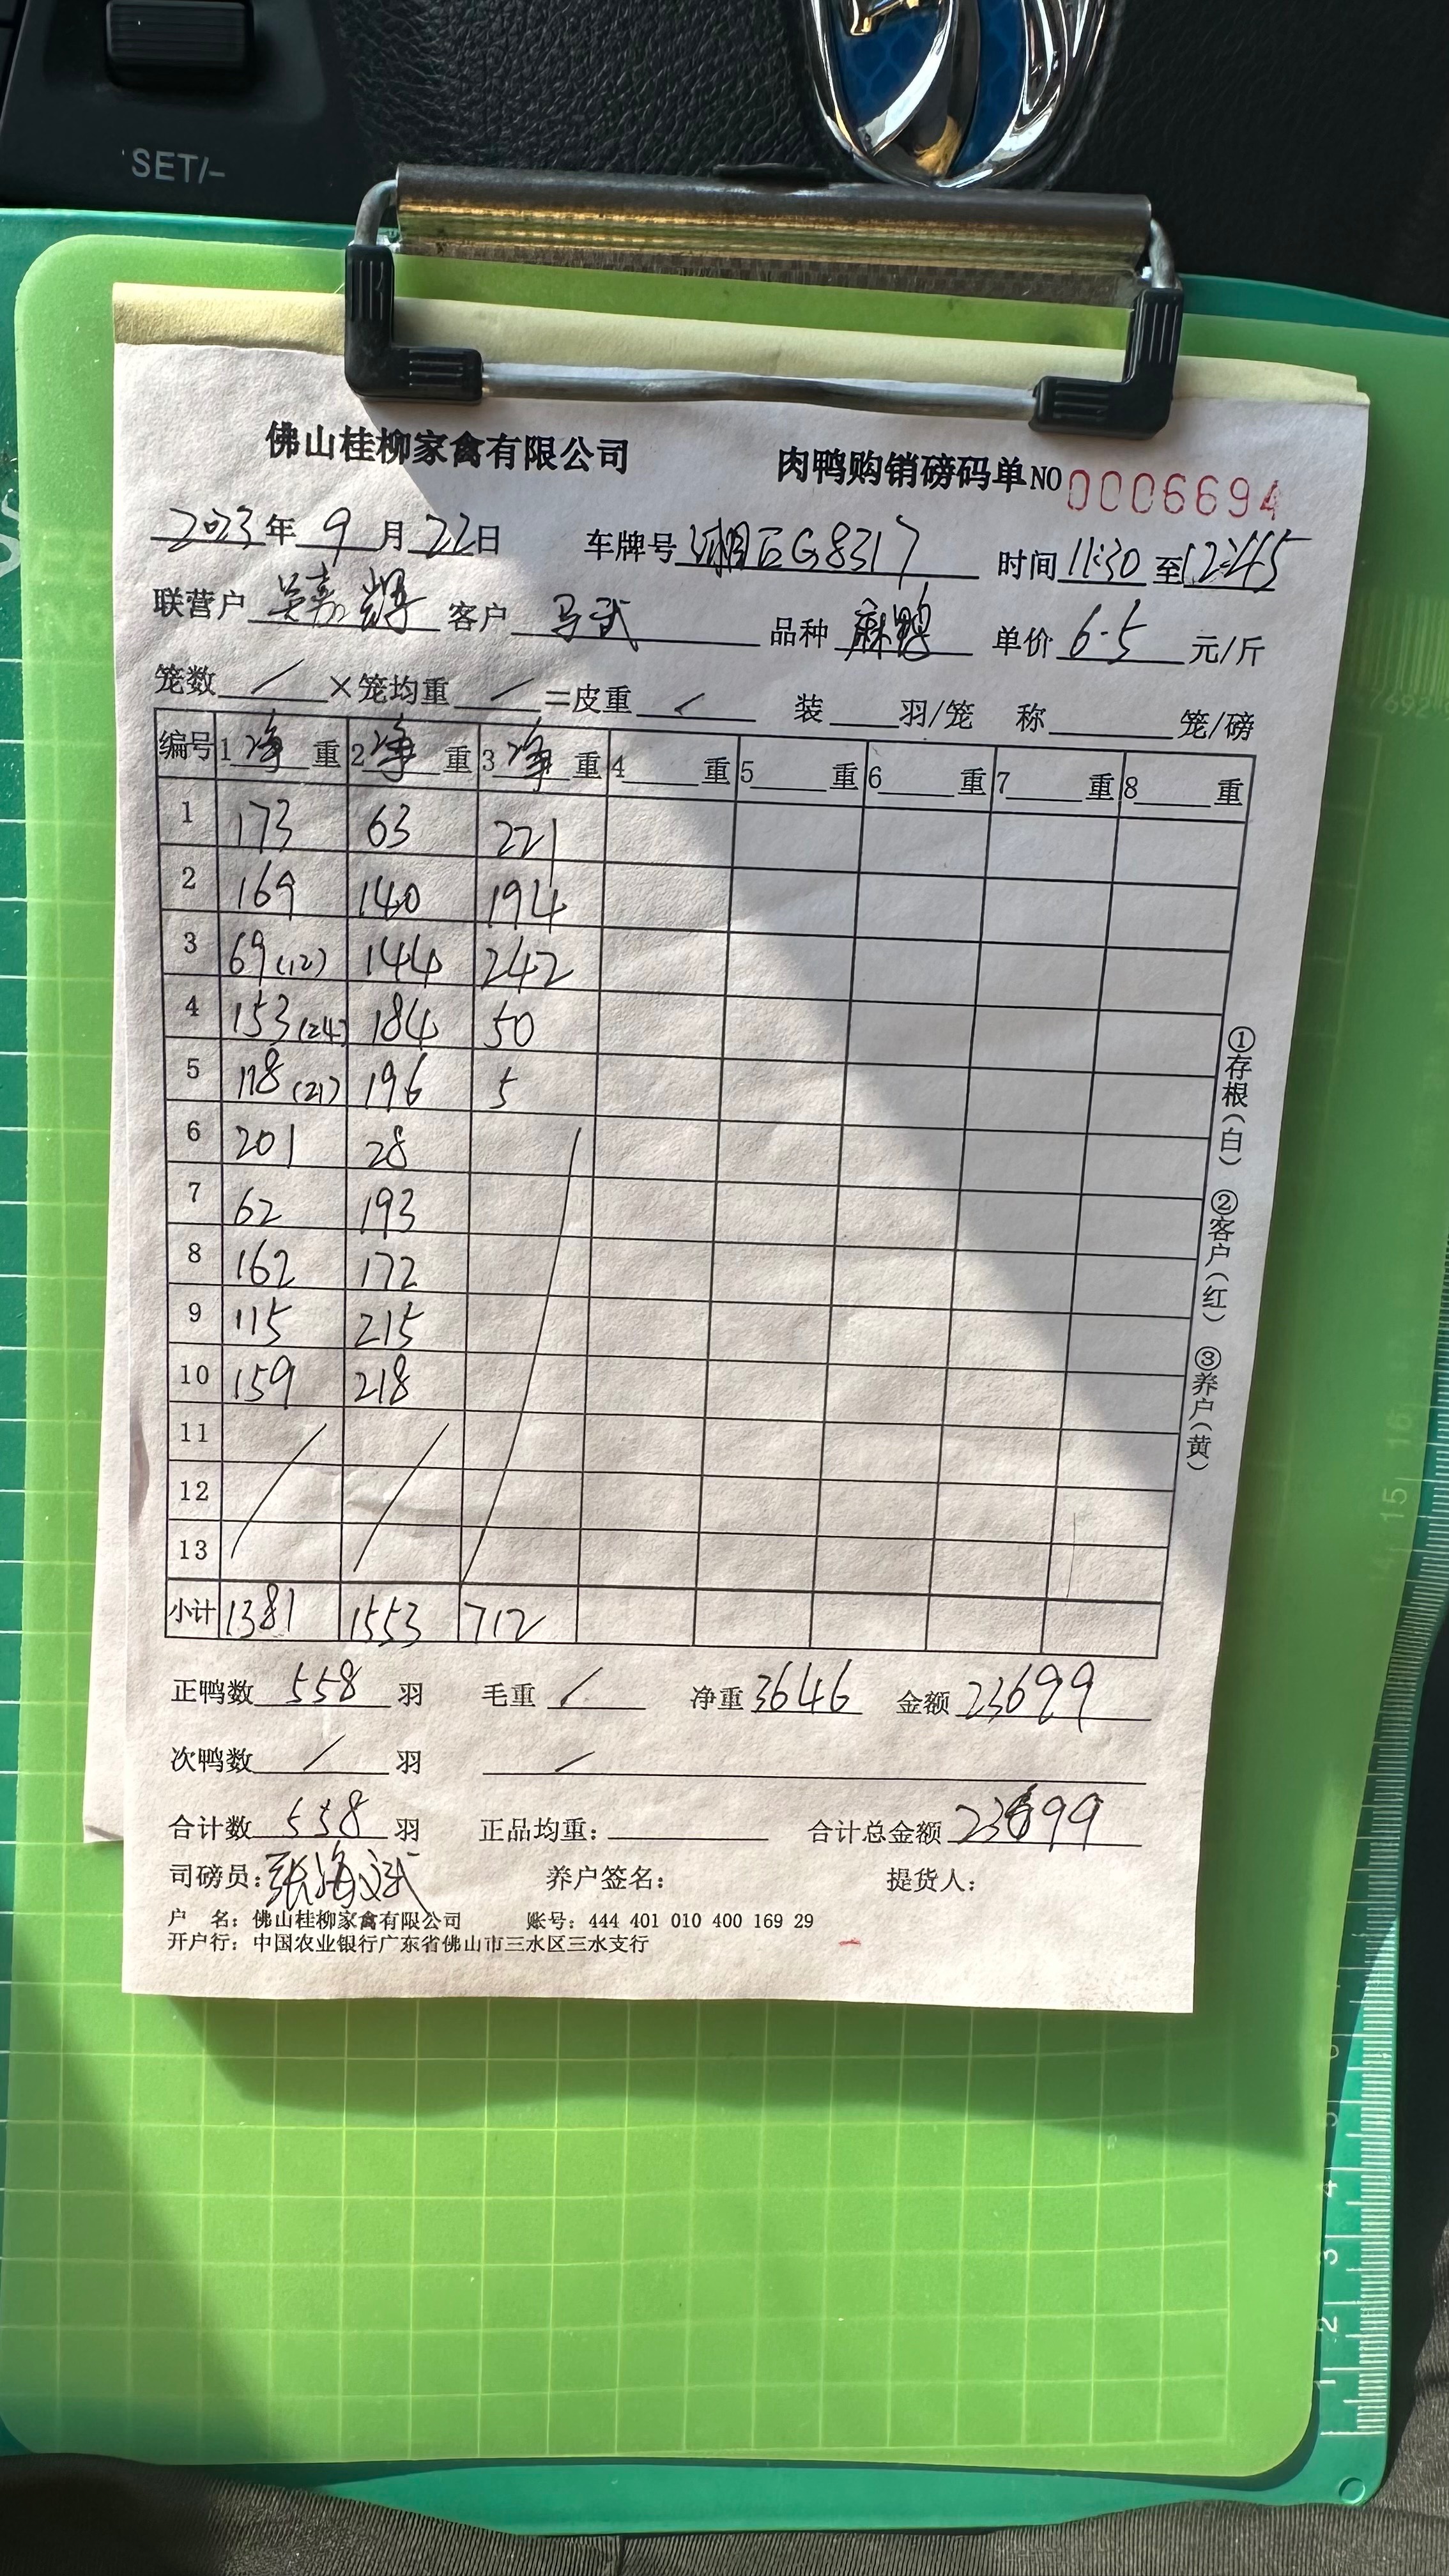 SET/-
佛山桂柳家禽有限公司 肉鸭购销磅码单 NO 0006694
2023年 9月 22日 车牌号 G8317 时间 11:30 至 12:45
联营户 客户 马武 品种 麻鸭 单价 6.5 元/斤
笼数 / ×笼均重 / =皮重 / 装 羽/笼 称 笼/磅
编号 1 净 重 2 净 重 3 净 重 4 重 5 重 6 重 7 重 8 重
1 173 63 221
2 169 140 194
3 69(12) 144 242
4 153(24) 184 50
5 118(21) 196 5
6 201 28
7 62 193
8 162 172
9 115 215
10 159 218
11
12
13
小计 1381 1553 712
正鸭数 558 羽 毛重 / 净重 3646 金额 23699
次鸭数 / 羽 /
合计数 558 羽 正品均重: 合计总金额 23699
司磅员: 张海 养户签名: 提货人:
户 名: 佛山桂柳家禽有限公司 账号: 444 401 010 400 169 29
开户行: 中国农业银行广东省佛山市三水区三水支行
①存根(白) ②客户(红) ③养户(黄)
15
5
4
3
2
1